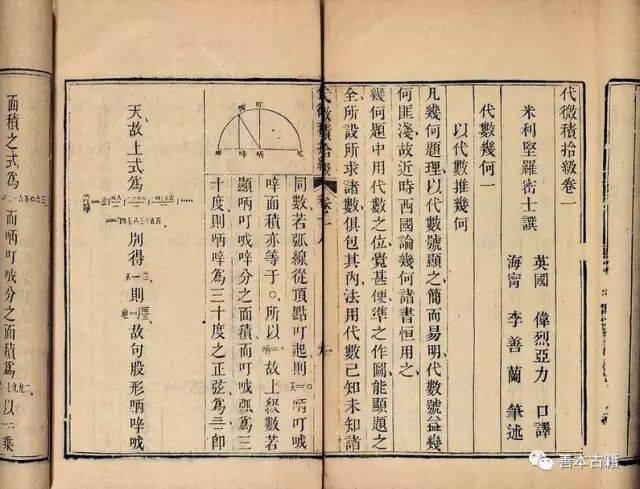 代微積拾級卷一
米利堅羅密士譔
英國 偉烈亞力 口譯
海甯 李善蘭 筆述
代數幾何一
以代數推幾何
凡幾何題理以代數號顯之簡而易明代數號益幾
何匪淺故近時西國論幾何諸書恒用之
幾何題中用代數之位覺甚便準之作圖能顯題之
全所設所求諸數俱包其內法用代數已知未知諸
代微積拾級 卷十八
同數若弧線從頂點叮起則 叮
面積亦等于〇所以 故上級數若
顯 叮 分之面積而叮 弧爲三
十度則 爲三十度之正弦爲 卽
天故上式爲 別得 則 故句股形
面積之式爲 而 叮 分之面積爲 以二乘
善本古籍